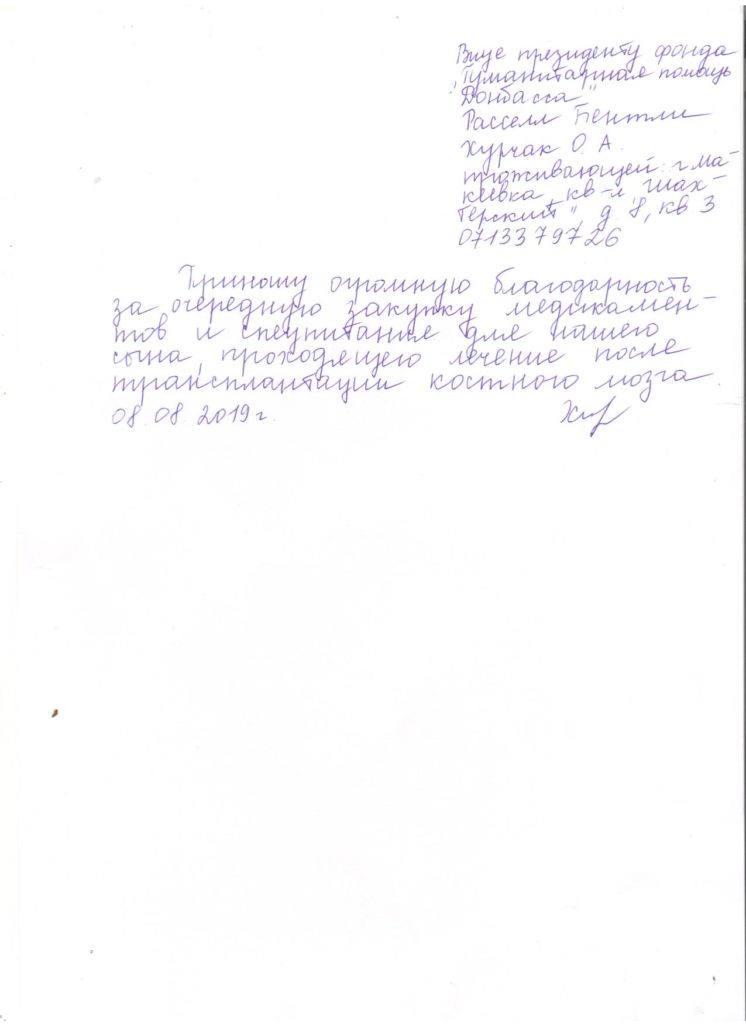 Вице президенту фонда
"Гуманитарная помощь
Донбасса"
Расселл Бентли
Хурчак О. А.
проживающей: г Ма-
кеевка, кв-л "Шах-
терский", д 8, кв 3
0713379726
Приношу огромную благодарность
за очередную закупку медикамен-
тов и спецпитания для нашего
сына, проходящего лечение после
трансплантации костного мозга.
08.08.2019 г.